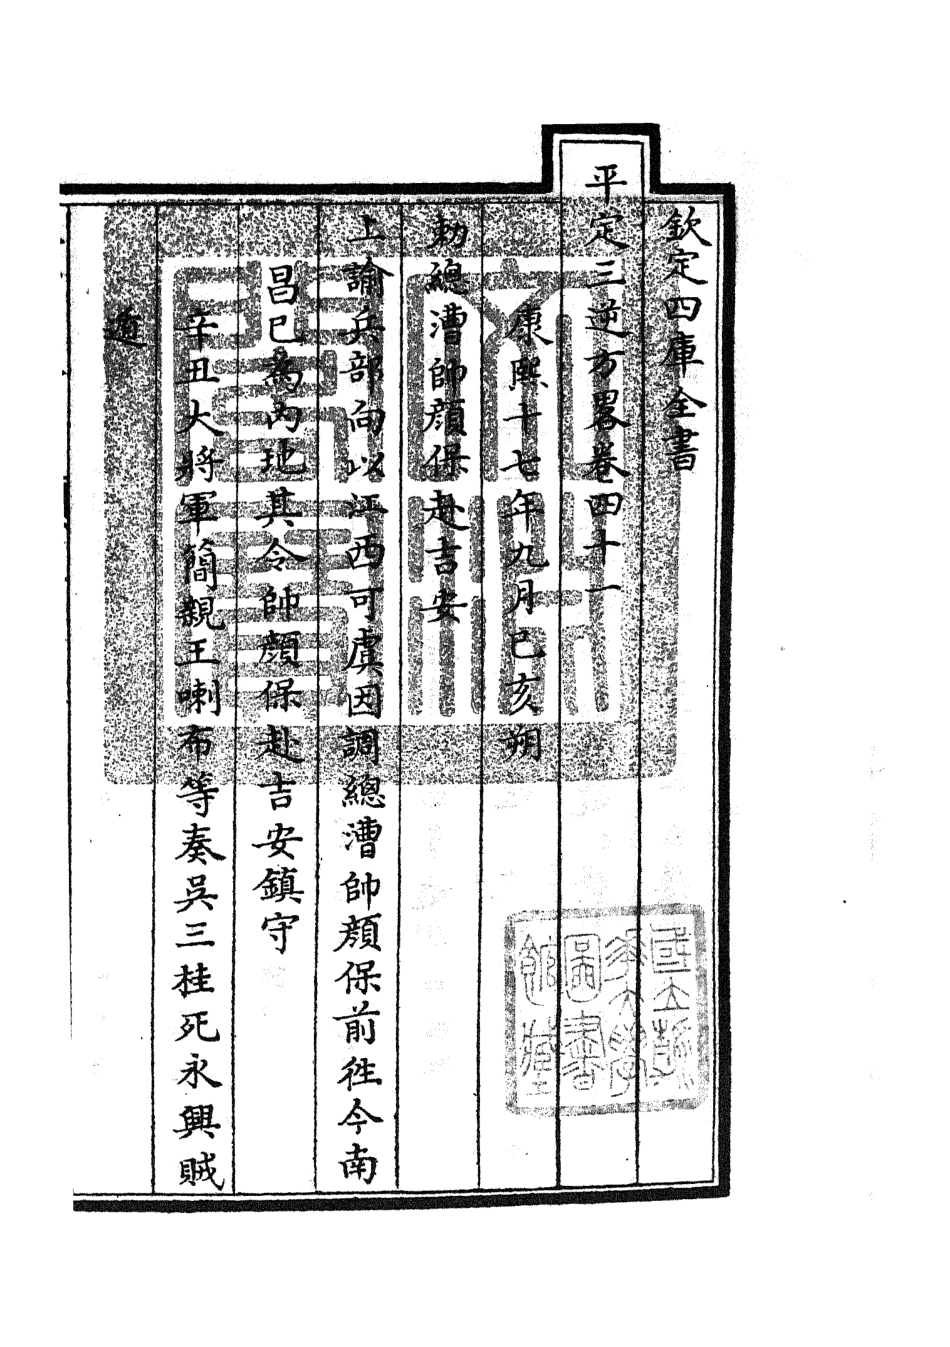 欽定四庫全書
平定三逆方畧卷四十一
康熙十七年九月己亥朔
勅總漕帥顔保赴吉安
上諭兵部向以江西可虞因調總漕帥顔保前徃今南
昌已為內地其令帥顔保赴吉安鎮守
辛丑大將軍簡親王喇布等奏吳三桂死永興賊
遁
國立清華大學圖書館藏